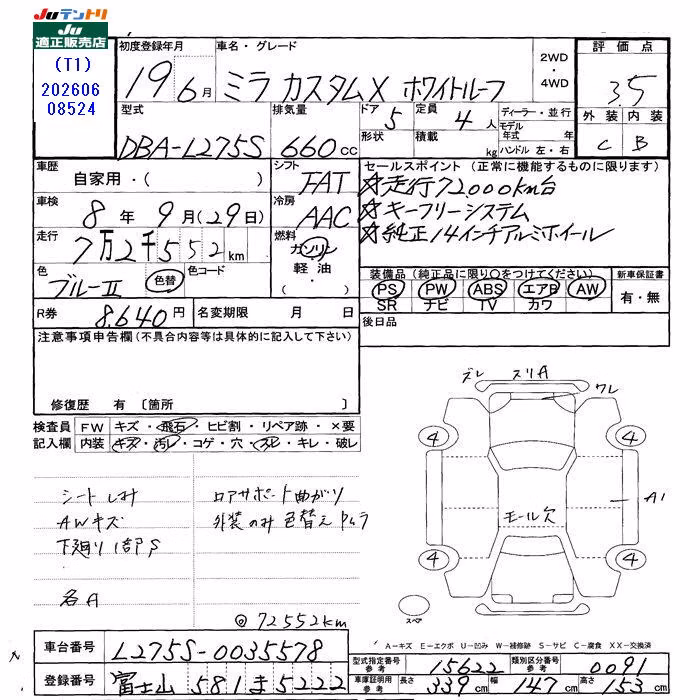 JUテントリ
JU
適正販売店
(T1)
202606
08524
初度登録年月
19 6月
車名・グレード
ミラ カスタムX ホワイトルーフ
2WD
・
4WD
評価点
3.5
外装 内装
C B
型式
DBA-L275S
排気量
660cc
ドア 5
形状
定員 4人
積載 kg
ディーラー・並行
モデル年式 年
ハンドル 左・右
車歴
自家用・( )
シフト
FAT
車検
8年 9月(29日)
冷房
AAC
走行
7万2千552km
燃料
ガソリン
軽油
・
( )
色
ブルーII
色替
色コード
セールスポイント (正常に機能するものに限ります)
☆走行72000km台
☆キーフリーシステム
☆純正14インチアルミホイール
装備品 (純正品に限り○をつけてください)
PS PW ABS エアB AW
SR ナビ TV カワ
新車保証書
有・無
R券 8,640円
名変期限 月 日
後日品
注意事項申告欄(不具合内容等は具体的に記入して下さい)
修復歴 有 〔箇所 〕
検査員記入欄
FW キズ・飛石・ヒビ割・リペア跡・×要
内装 キズ・汚レ・コゲ・穴・スレ・キレ・破レ
シートしみ
AWキズ
下廻り1部S
名A
ロアサポート曲がり
外装のみ色替えムラ
@72552km
ズレ スリA
ワレ
4 4
A1
モール欠
4 4
スペア
A-キズ E-エクボ U-凹み W-補修跡 S-サビ C-腐食 XX-交換済
車台番号 L275S-0035578
登録番号 富士山 581 ま 5222
型式指定番号 参考 15622
類別区分番号 参考 0091
車庫証明用 参考 長さ 339cm 幅 147cm 高さ 153cm